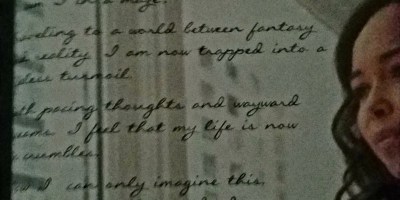 I in a maze.
to a world between fantasy
reality. I am now trapped into a
turmoil.
pacing thoughts and wayward
I feel that my life is now
I can only imagine this.